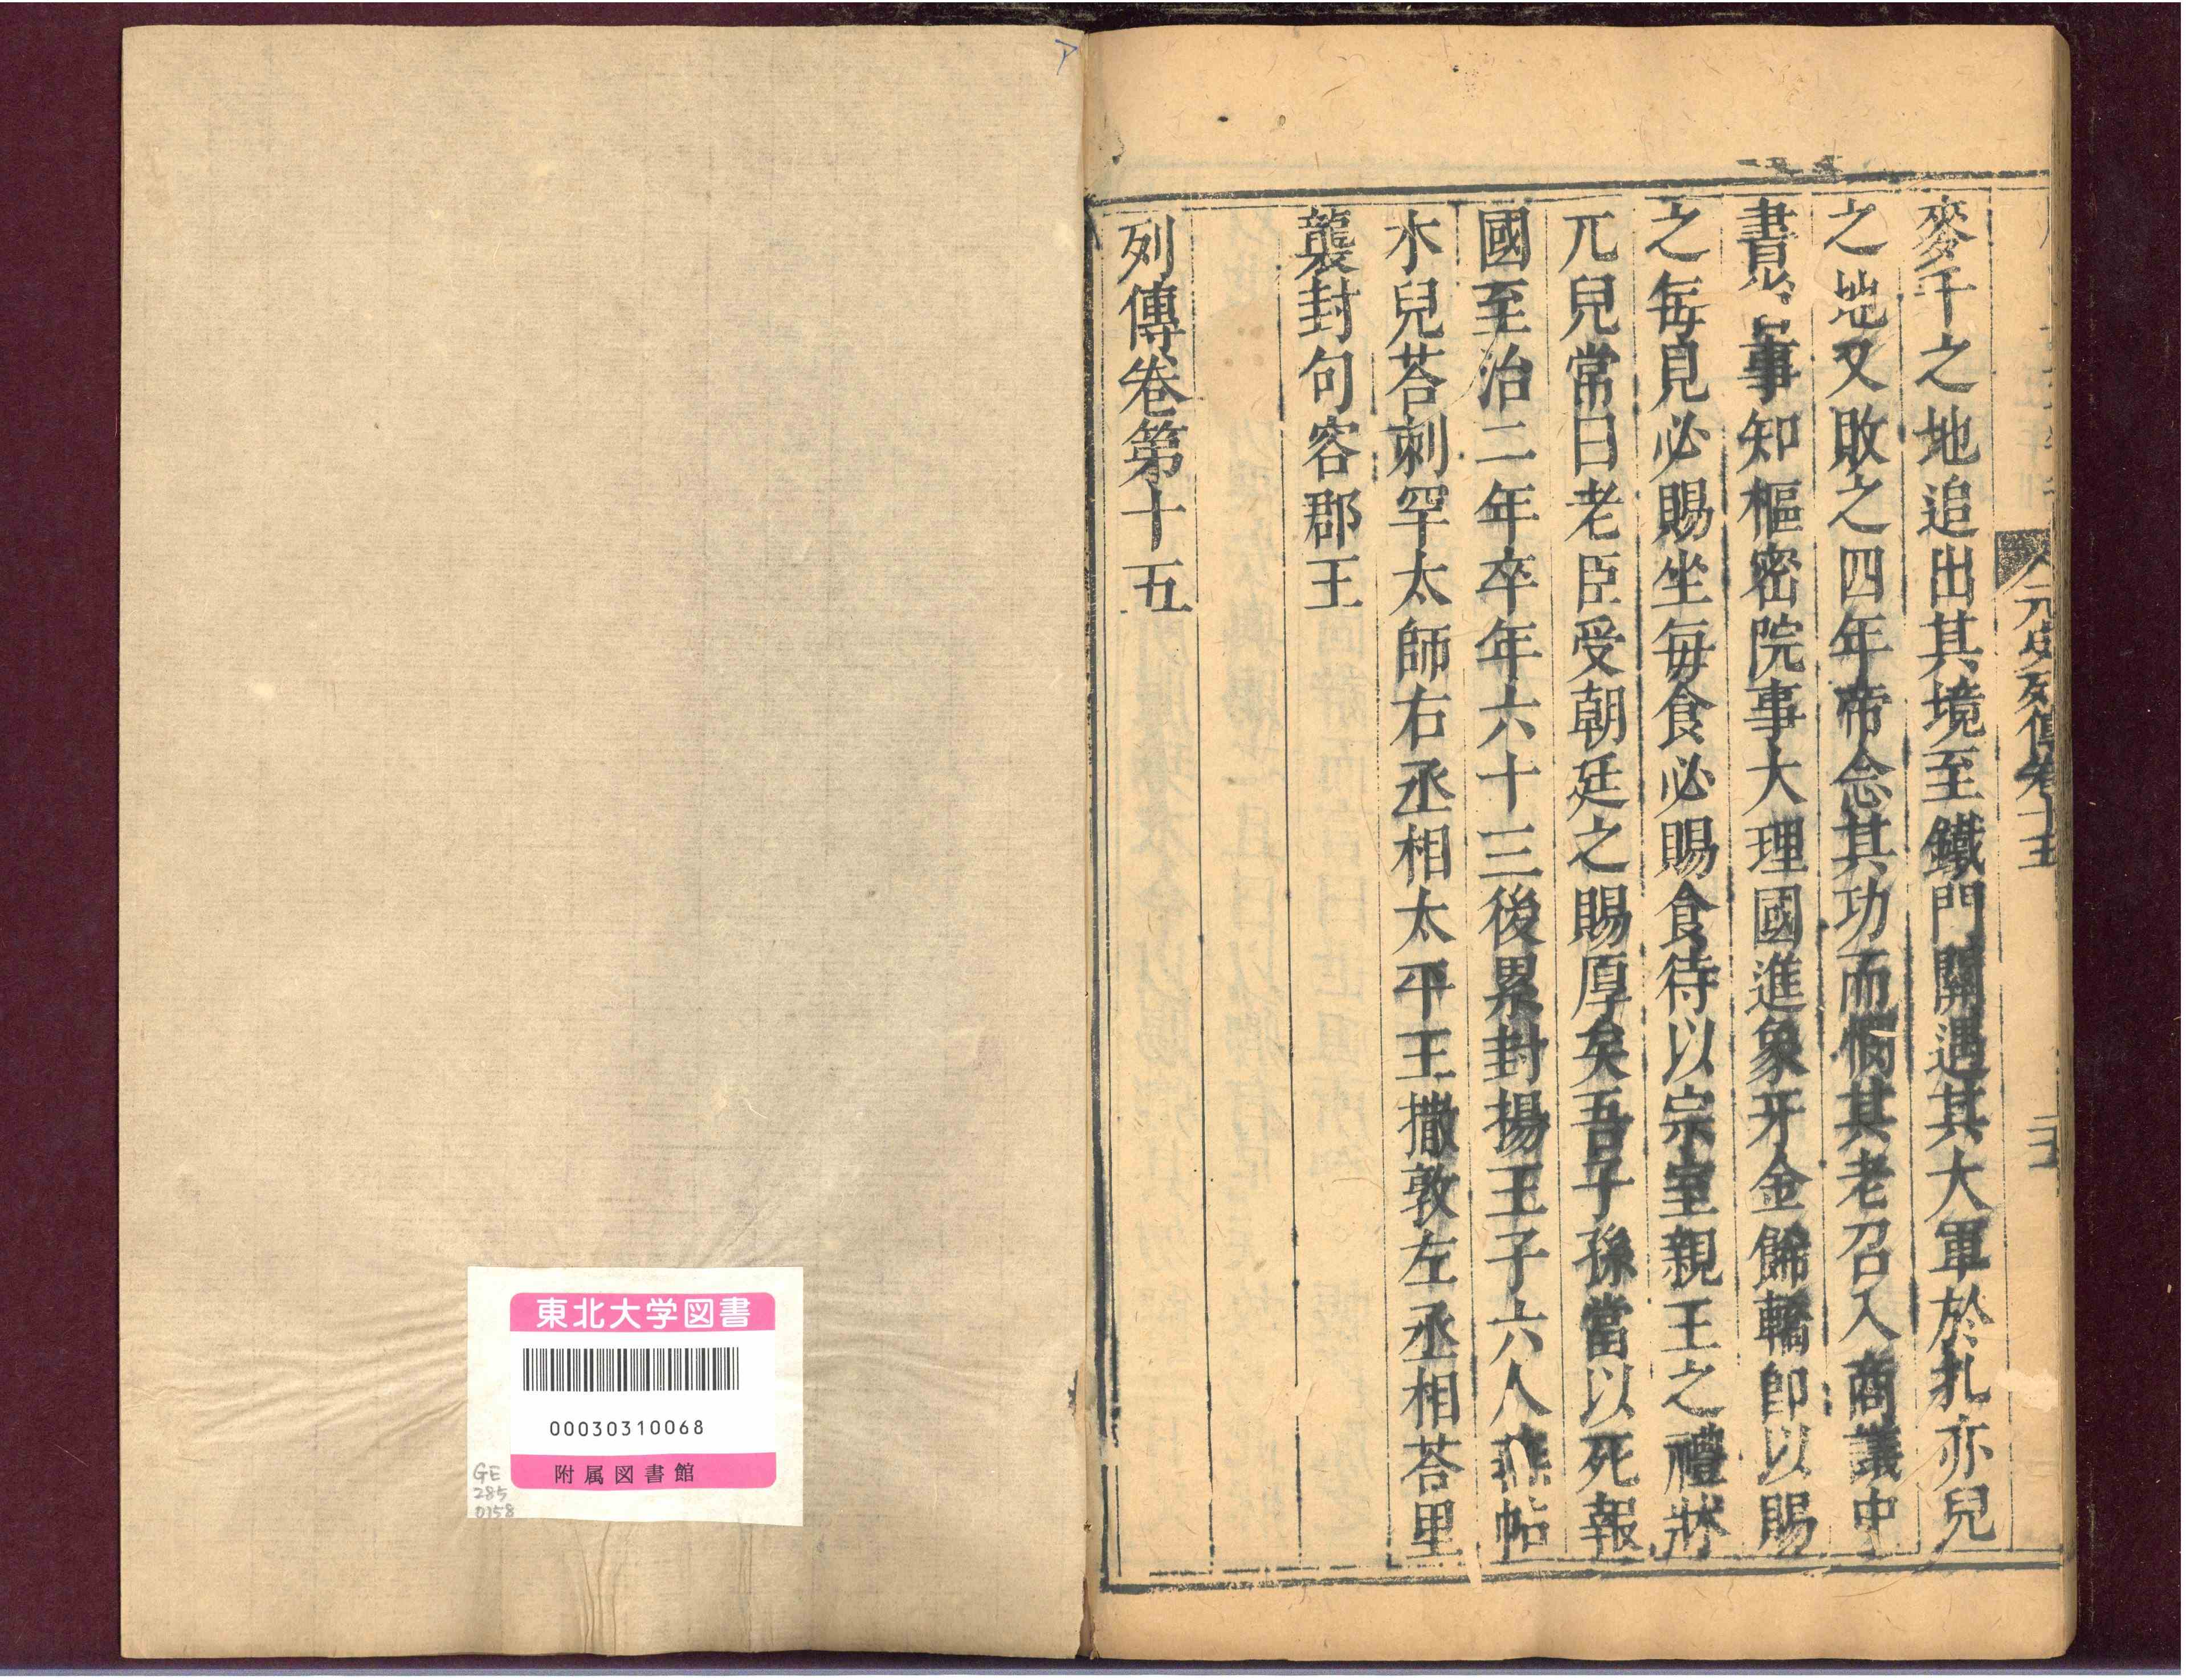 麥干之地追出其境至鐵門關遇其大軍於扎亦兒
之地又敗之四年帝念其功而憫其老召入商議中
書省事知樞密院事大理國進象牙金飾轎即以賜
之每見必賜坐每食必賜食待以宗室親王之禮牀
兀兒常曰老臣受朝廷之賜厚矣吾子孫當以死報
國至治二年卒年六十三後累封揚王子六人燕帖
木兒荅刺罕太師右丞相太平王撒敦左丞相荅里
襲封句容郡王
列傳卷第十五
元史列傳卷十五
東北大学図書
00030310068
附属図書館
GE
285
0158
ア